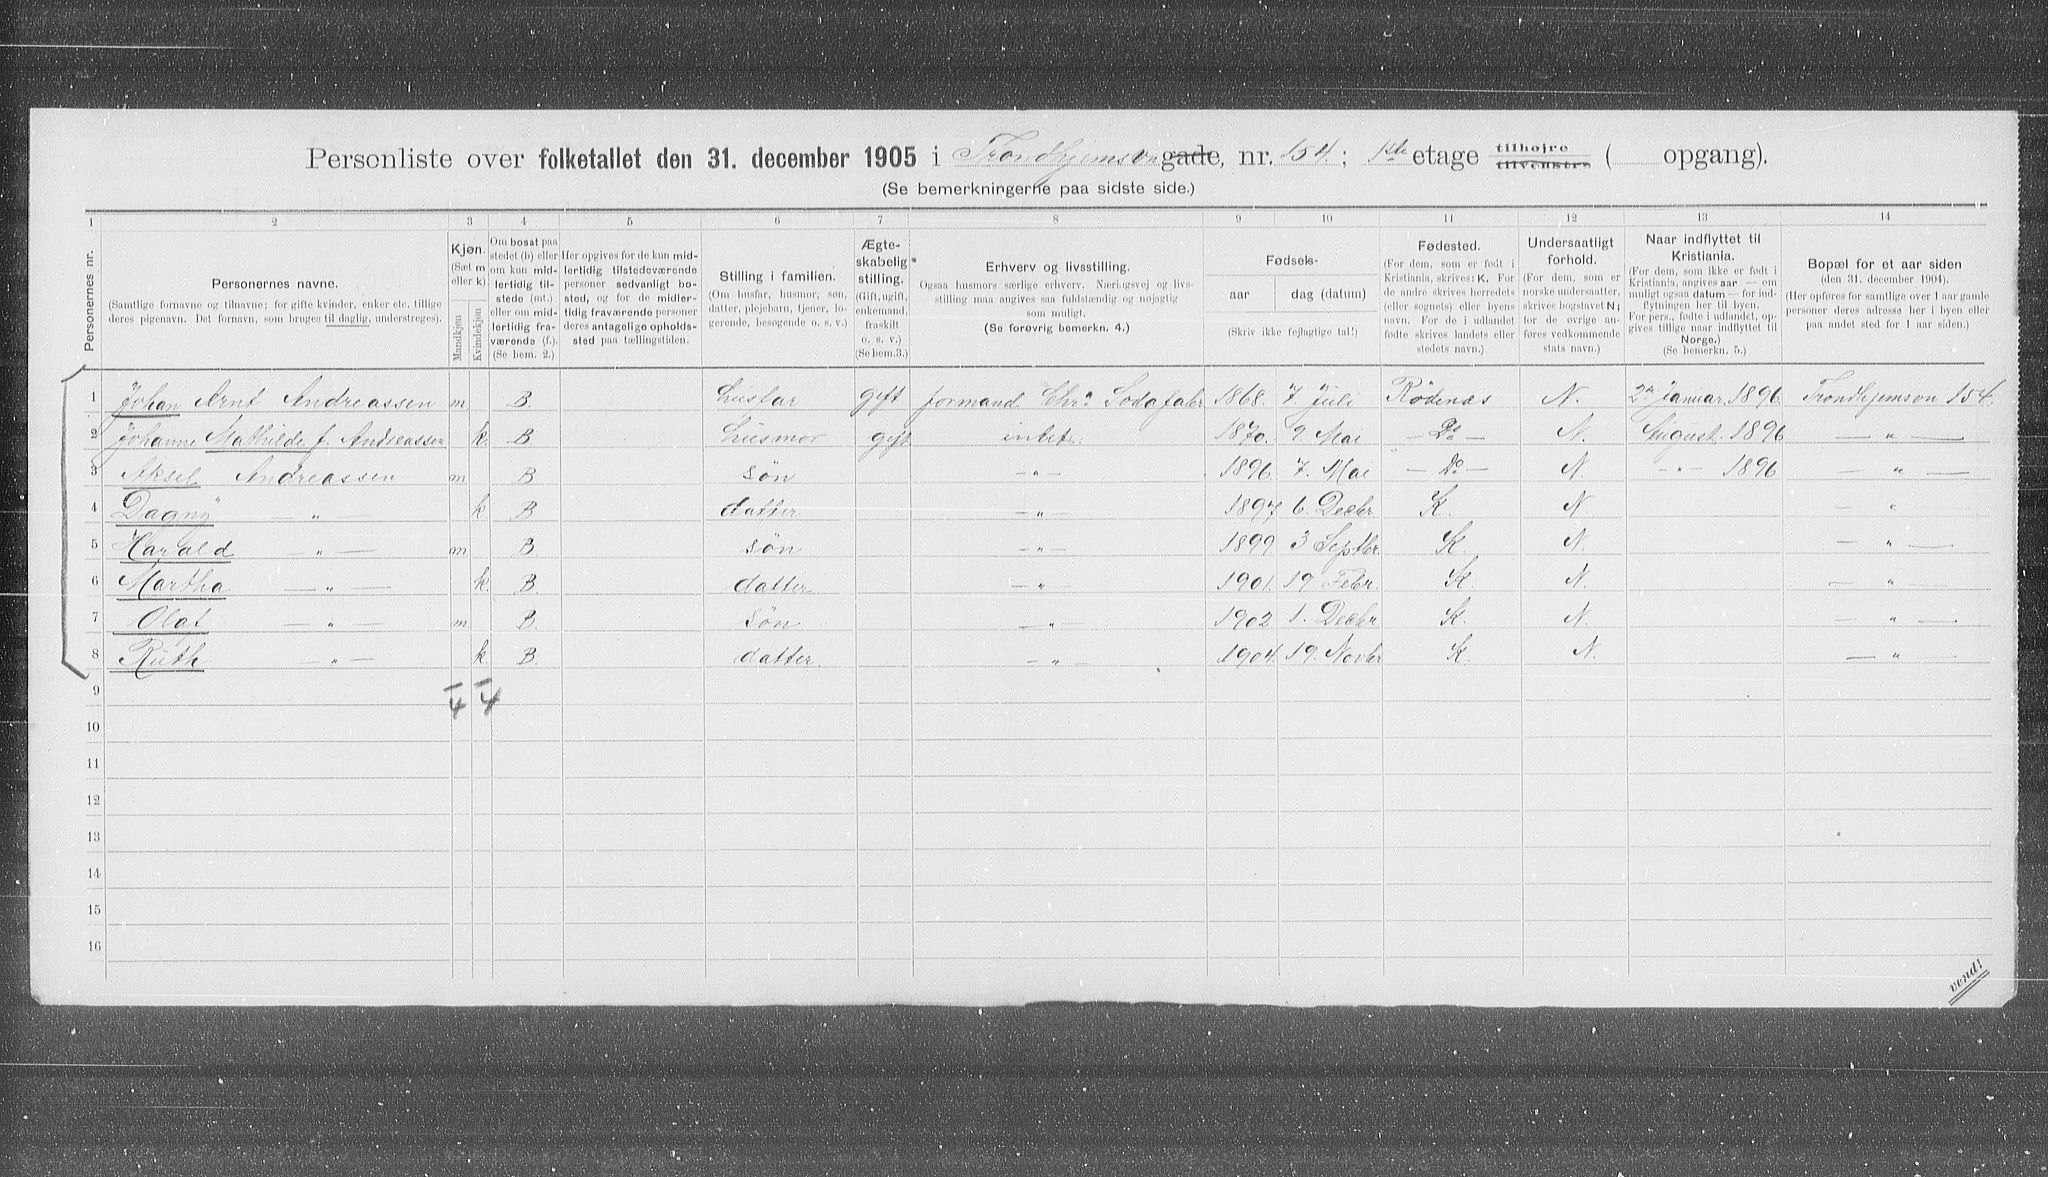 Personliste over folketallet den 31. december 1905 i Trondhjemsvn gade, nr. 154 ; 1ste etage tilhøjre tilvenstre ( opgang).
(Se bemerkningerne paa sidste side.)
1 2 3 4 5 6 7 8 9 10 11 12 13 14
Personernes nr.
Personernes navne.
(Samtlige fornavne og tilnavne; for gifte kvinder, enker etc. tillige
deres pigenavn. Det fornavn, som bruges til daglig, understreges).
Kjøn.
(Sæt m
eller k)
Mandkjøn
Kvindekjøn
Om bosat paa
stedet (b) eller
om kun mid-
lertidig til-
stede (mt.)
eller om mid-
lertidig fra-
værende (f.).
(Se bem. 2.)
Her opgives for de kun mid-
lertidig tilstedeværende
personer sedvanlig bo-
sted, og for de midler-
tidig fraværende personer
deres antagelige opholds-
sted paa tællingstiden.
Stilling i familien.
(Om husfar, husmor, søn,
datter, plejebarn, tjener, lo-
gerende, besøgende o. s. v.)
Ægte-
skabelig
stilling.
(Gift, ugift,
enkemand,
fraskilt
o. s. v.)
(Se bem.3.)
Erhverv og livsstilling.
Ogsaa husmors særlige erhverv. Næringsvej og livs-
stilling maa angives saa fuldstændig og nøjagtig
som muligt.
(Se forøvrig bemerkn. 4.)
Fødsels-
aar dag (datum)
(Skriv ikke fejlagtige tal!)
Fødested.
(For dem, som er født i
Kristiania, skrives: K. For
de andre skrives herredets
(eller sognets) eller byens
navn. For de i udlandet
fødte skrives landets eller
stedets navn.)
Undersaatligt
forhold.
(For dem, som er
norske undersaatter,
skrives bogstavet N;
for de øvrige an-
føres vedkommende
stats navn.)
Naar indflyttet til
Kristiania.
(For dem, som ikke er født i
Kristiania, angives aar — om
muligt ogsaa datum — for ind-
flytningen her til byen.
For pers., fødte i udlandet, op-
gives tillige naar indflyttet til
Norge.)
(Se bemerkn. 5.)
Bopæl for et aar siden
(den 31. december 1904).
(Her opføres for samtlige over 1 aar gamle
personer deres adresse her i byen eller
paa andet sted for 1 aar siden.)
1 Johan Arnt Andreassen m B. husfar gift formand Chra Sodafabr 1868. 7 Juli Rödenæs N. 2n Januar 1896 Trondhjemsvn 154.
2 Johanne Mathilde f. Andreassen k. B husmor gift intet. 1870. 9. Mai — Do — N. August. 1896 — „ —
3 Aksel Andreassen m B søn — „ — 1896. 7. Mai — Do — N. — „ — 1896 — „ —
4 Dagny — „ — k B datter — „ — 1897 6. Decbr. K. N. — „
5 Harald — „ — m B. søn — „ — 1899 3 Septbr. K. N. — „ —
6 Martha — „ — k. B. datter — „ — 1901. 19 Febr. K. N. — „ —
7 Olaf — „ — m B. søn — „ — 1902 1. Decbr K. N. — „ —
8 Ruth — „ — k B. datter. — „ — 1904. 19. Novbr K. N. — „ —
9
4 4
10
11
12
13
14
15
16
vend!